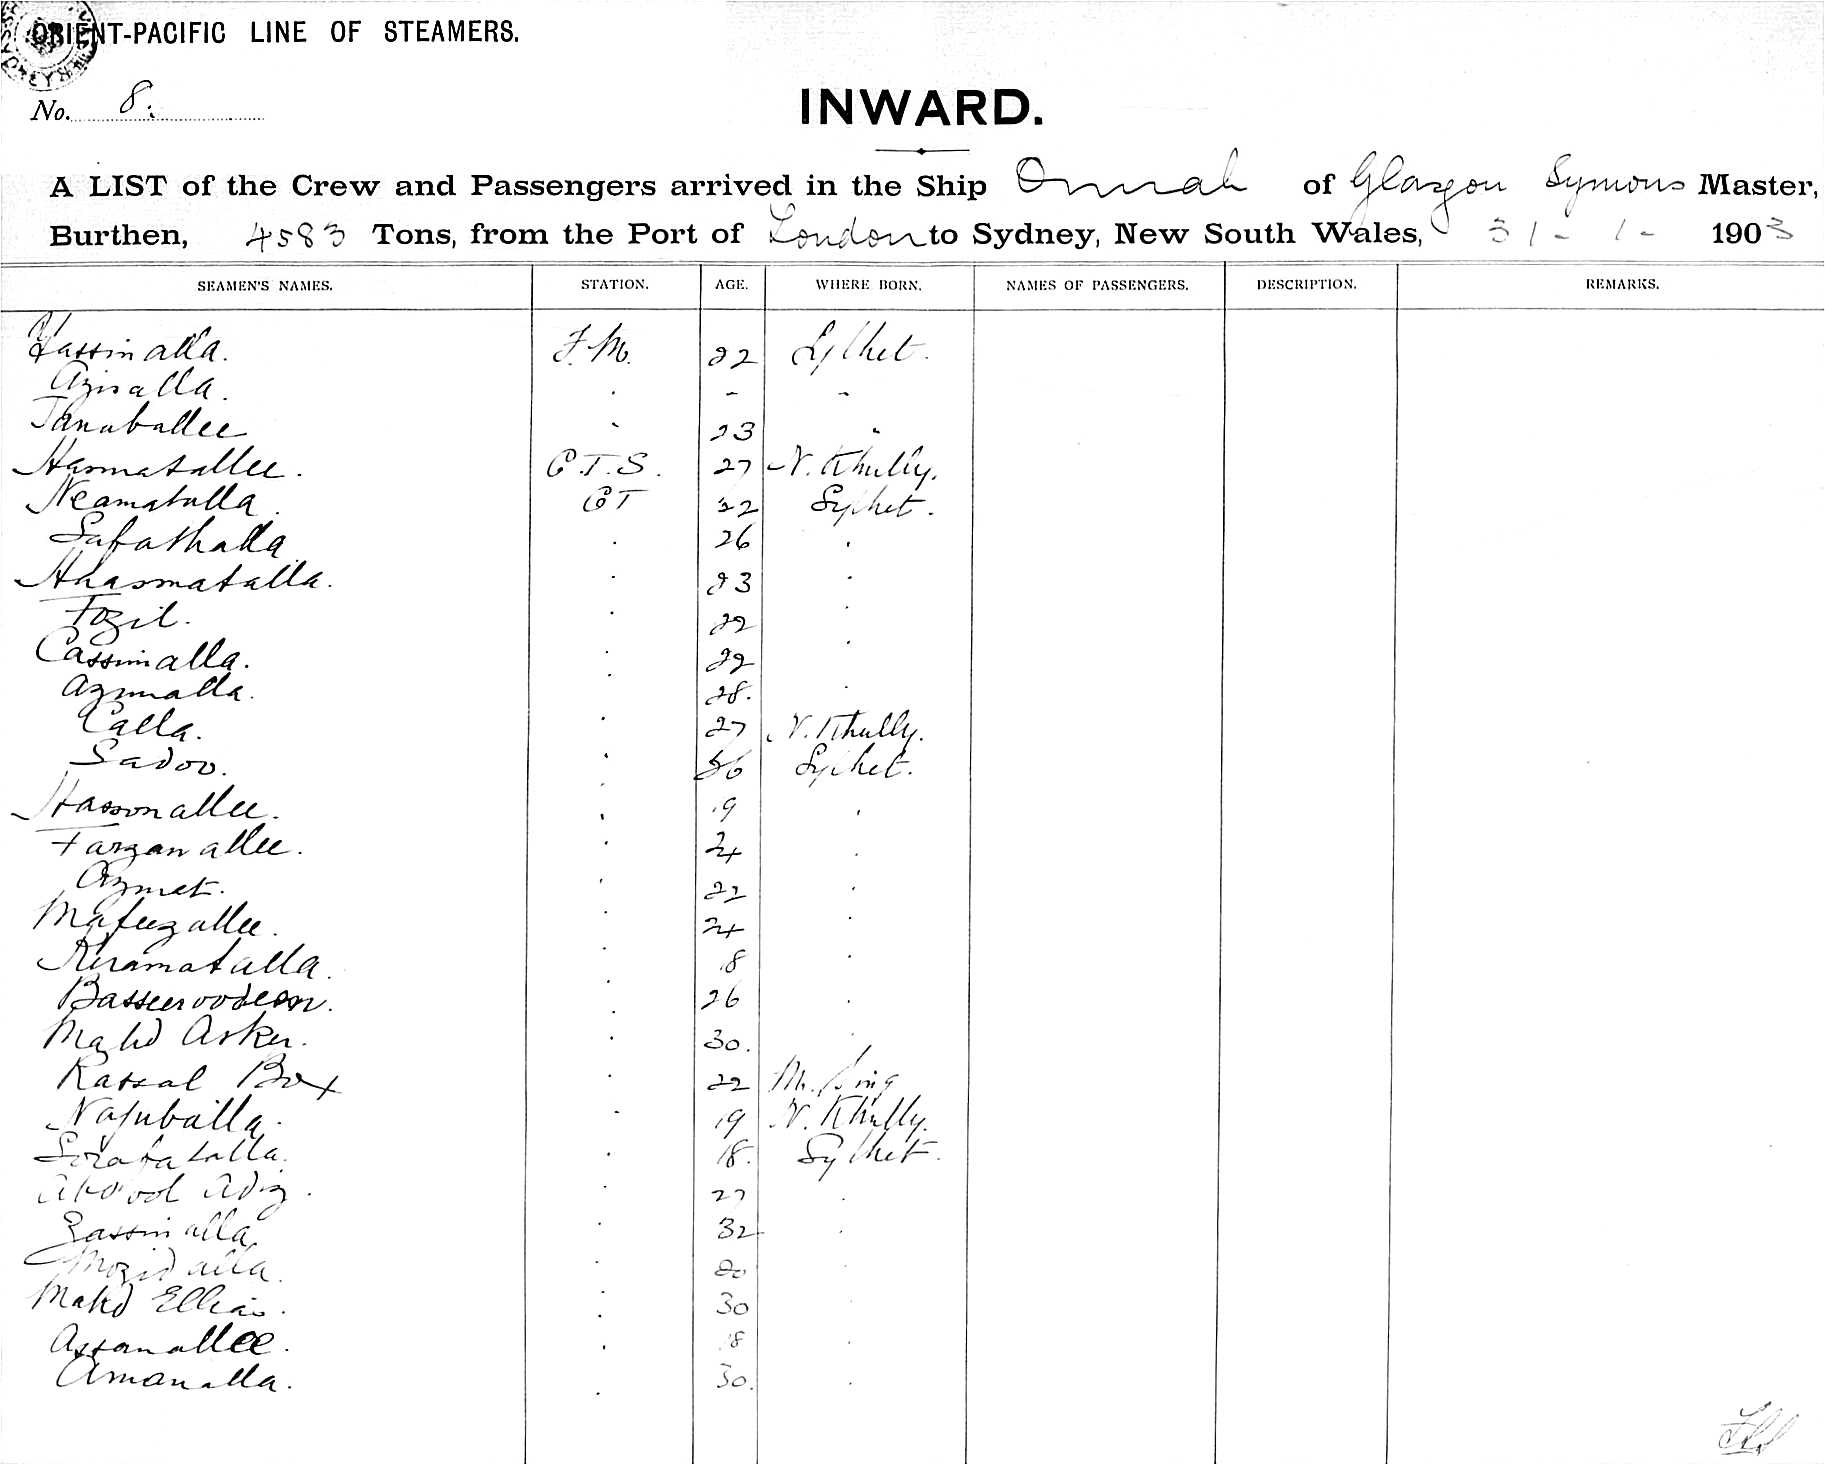 ORIENT-PACIFIC LINE OF STEAMERS.
No. 8.
INWARD.
A LIST of the Crew and Passengers arrived in the Ship Omrah of Glasgow Symons Master,
Burthen, 4583 Tons, from the Port of London to Sydney, New South Wales, 31-1-1903
SEAMEN'S NAMES. STATION. AGE. WHERE BORN. NAMES OF PASSENGERS. DESCRIPTION. REMARKS.
Yassin alla. F.M. 22 Sylhet.
Azisalla. . - -
Tanaballee . 23 "
Hasmatallee. C.T.S. 27 N. Khully.
Neamatulla. CT 22 Sylhet.
Safathalla . 26 .
Haasmatalla. . 23 .
Fozil. . 22 .
Cassimalla. . 22 .
Azimalla. . 28. .
Calla. . 27 N. Khully.
Sadoo. . 36 Sylhet.
Hassonallee. . 19 .
Farzanallee. . 24 .
Azmet. . 22 .
Mafeezallee. . 24 .
Keramatalla. . 18 .
Basseeroodeen. . 26 .
Mahd Asker. . 30. .
Rassal Box . 22
Najuballa. . 19 N. Khully.
Sorafatalla. . 18. Sylhet.
Abdool Adiz. . 27 .
Yassin alla . 32 .
Mozid alla. . 20 .
Mahd Ellias. . 30 .
Assanallee. . 18 .
Amanalla. . 30. .